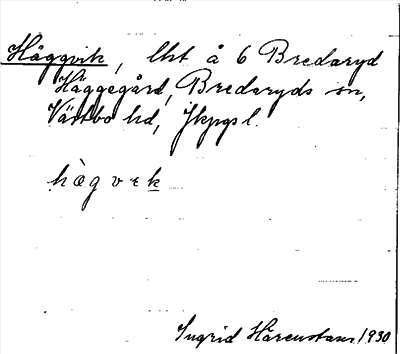 Häggvik, lht å 6 Bredaryd
Häggegård, Bredaryds sn,
Västbo hd, Jkpgs l.
hægvɩk
Ingrid Hårenstam 1930